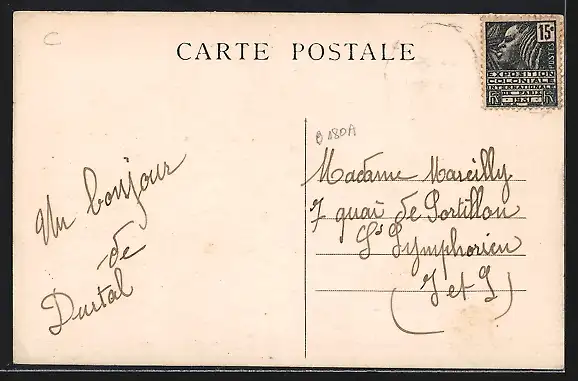 C
CARTE POSTALE
15c
POSTES
EXPOSITION
COLONIALE
INTERNATIONALE
DE PARIS
1931
B180A
Un bonjour
de
Durtal
Madame Marcilly
7 quai de Portillon
St Symphorien
(I et L)